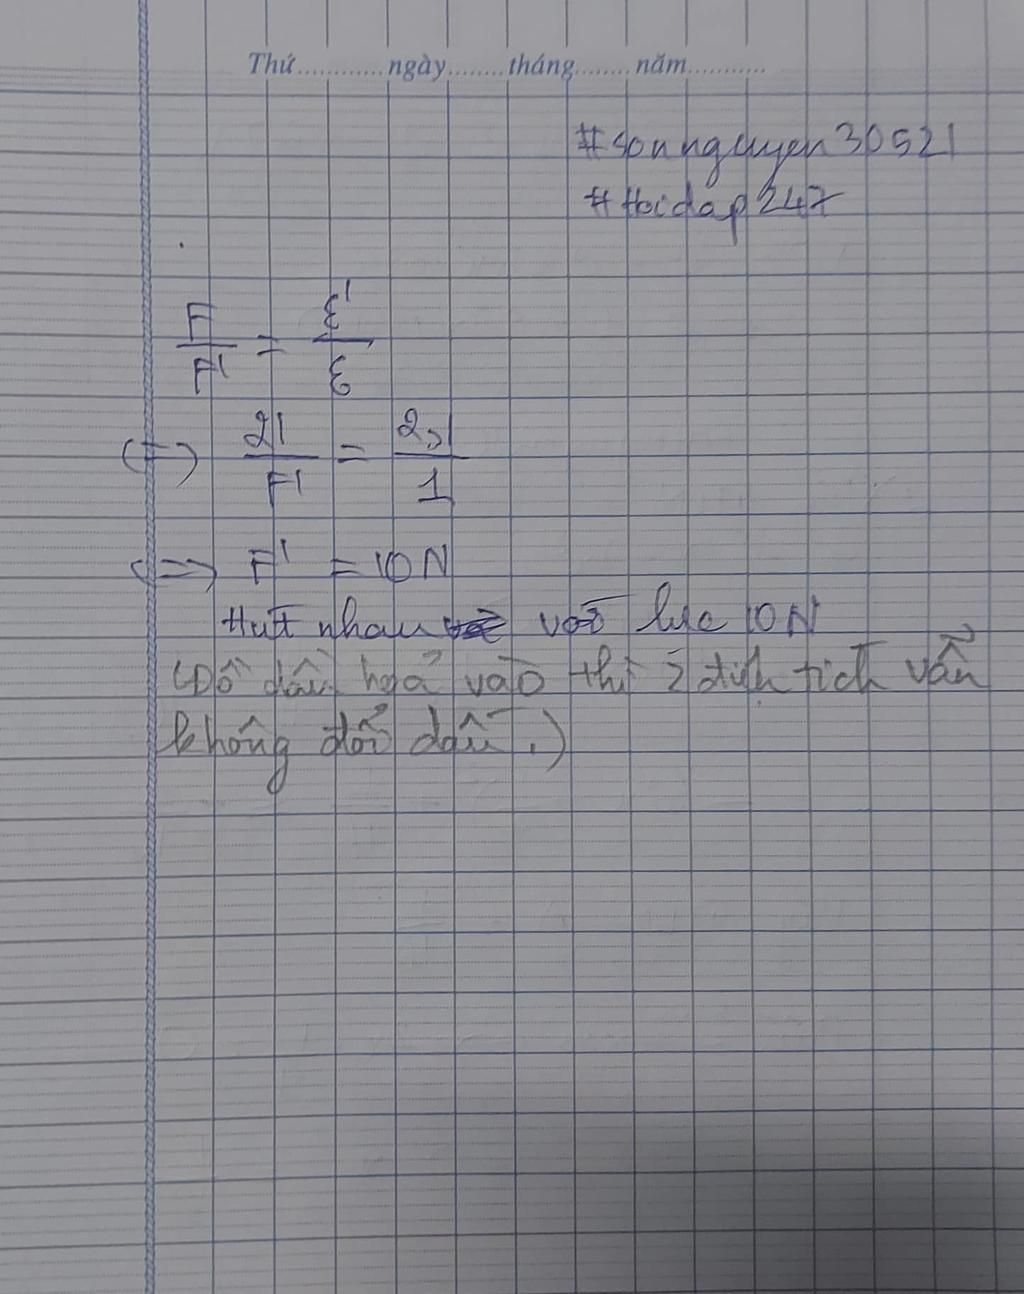 Thứ............ngày........tháng........năm...........
#sonnguyen30521
#hoidap247
F/F' = ε'/ε
<=> 21/F' = 2,1/1
<=> F' = 10N
Hút nhau với lực 10N
(Đổ dầu hoả vào thì 2 điện tích vẫn
không đổi dấu.)